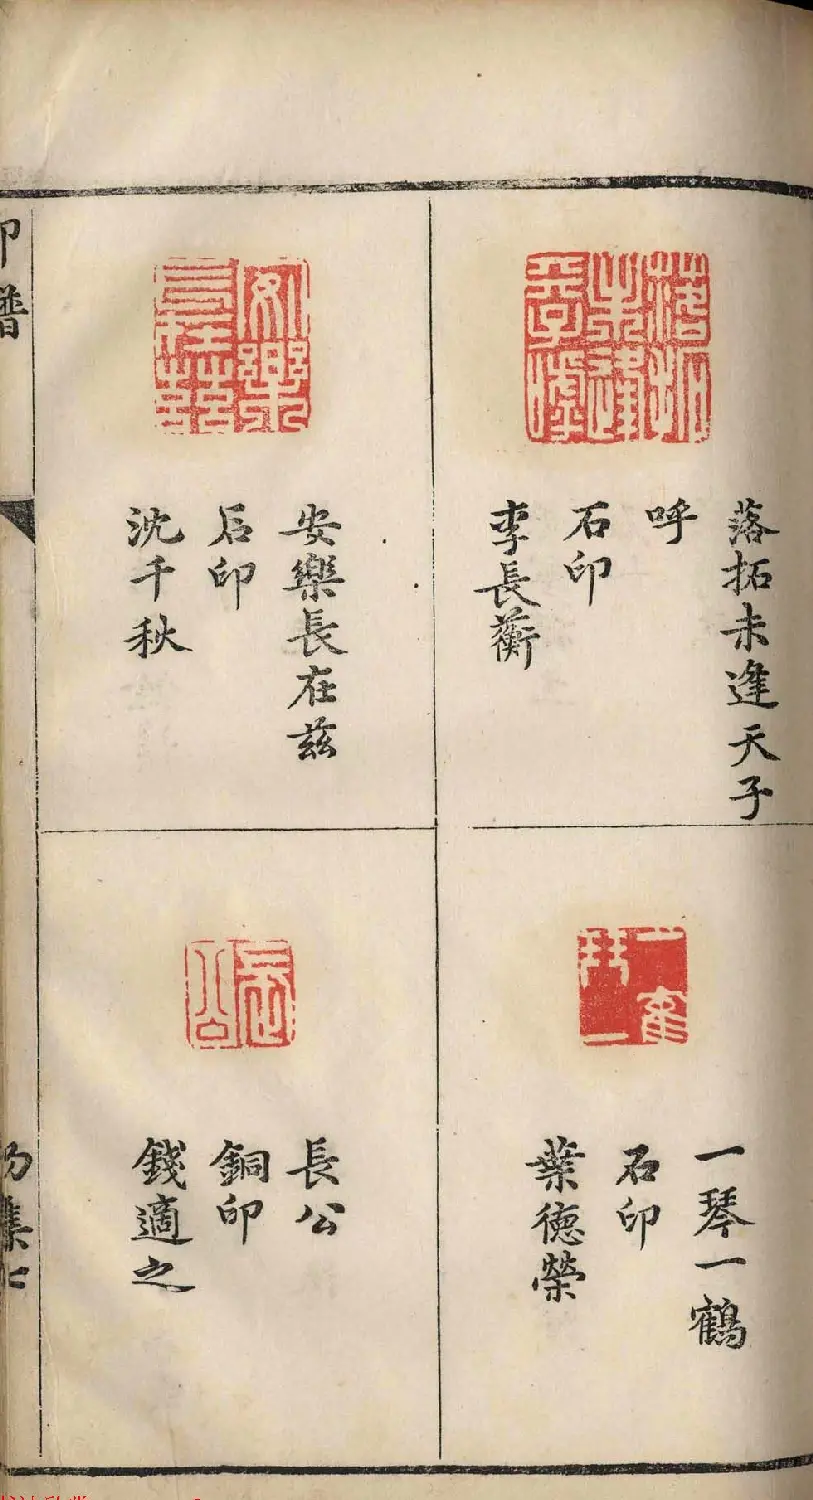 落拓未逢天子
呼
石印
李長蘅
安樂長在茲
石印
沈千秋
一琴一鶴
石印
葉德榮
長公
銅印
錢適之
印譜